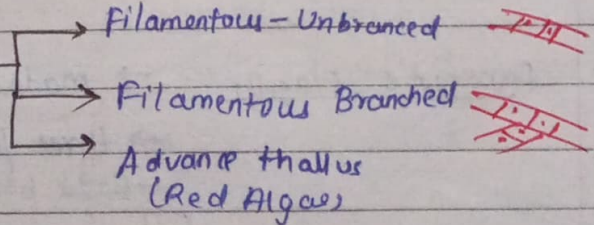 Filamentous - Unbranced
Filamentous Branched
Advance thallus
(Red Algae)